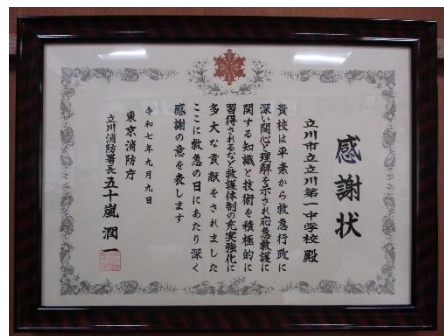 感謝状
立川市立立川第一中学校 殿
貴校は平素から救急行政に
深い関心と理解を示され応急救護に
関する知識と技術を積極的に
習得されるなど救護体制の充実強化に
多大な貢献をされました
ここに救急の日にあたり深く
感謝の意を表します
令和七年九月九日
東京消防庁
立川消防署長 五十嵐 潤一